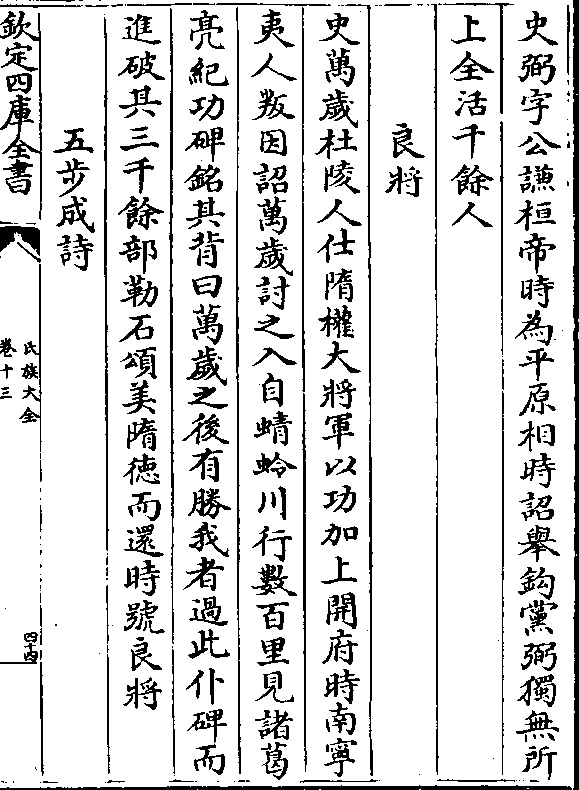 史弼字公謙桓帝時為平原相時詔舉鈎黨弼獨無所
上全活千餘人
良將
史萬歲杜陵人仕隋櫂大將軍以功加上開府時南寧
夷人叛因詔萬歲討之入自蜻蛉川行數百里見諸葛
亮紀功碑銘其背曰萬歲之後有勝我者過此仆碑而
進破其三千餘部勒石頌美隋徳而還時號良將
五步成詩
欽定四庫全書
氏族大全
卷十三
四十四